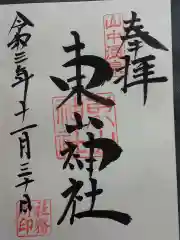 奉拝
山中温泉
東山神社
令和三年十一月三十日